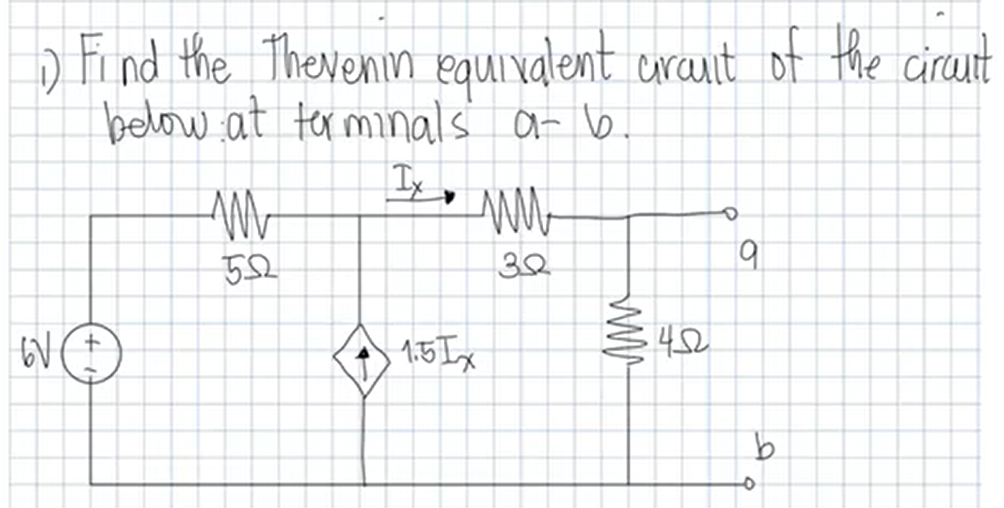 1) Find the Thevenin equivalent circuit of the circuit
below at terminals a-b.
Ix
5Ω
3Ω
a
6V
+
-
1.5Ix
4Ω
b